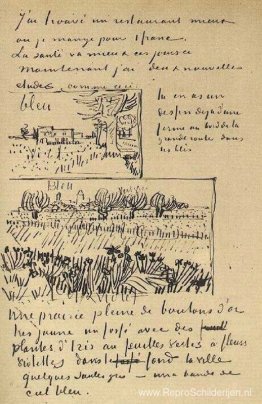 J'ai trouvé un restaurant mieux
où je mange pour 1 franc.
La santé va mieux ces jours ci
Maintenant j'ai deux nouvelles
etudes comme ceci
bleu
tu en as un
dessin déjà d'une
ferme au bord de la
grande route dans
les blés
Bleu
Une prairie pleine de boutons d'or
très jaune un fossé avec des
plantes d'iris au feuilles vertes à fleurs
violettes dans le fond la ville
quelques saules gris – une bande de
ciel bleu.
www.ReproSchilderijen.nl